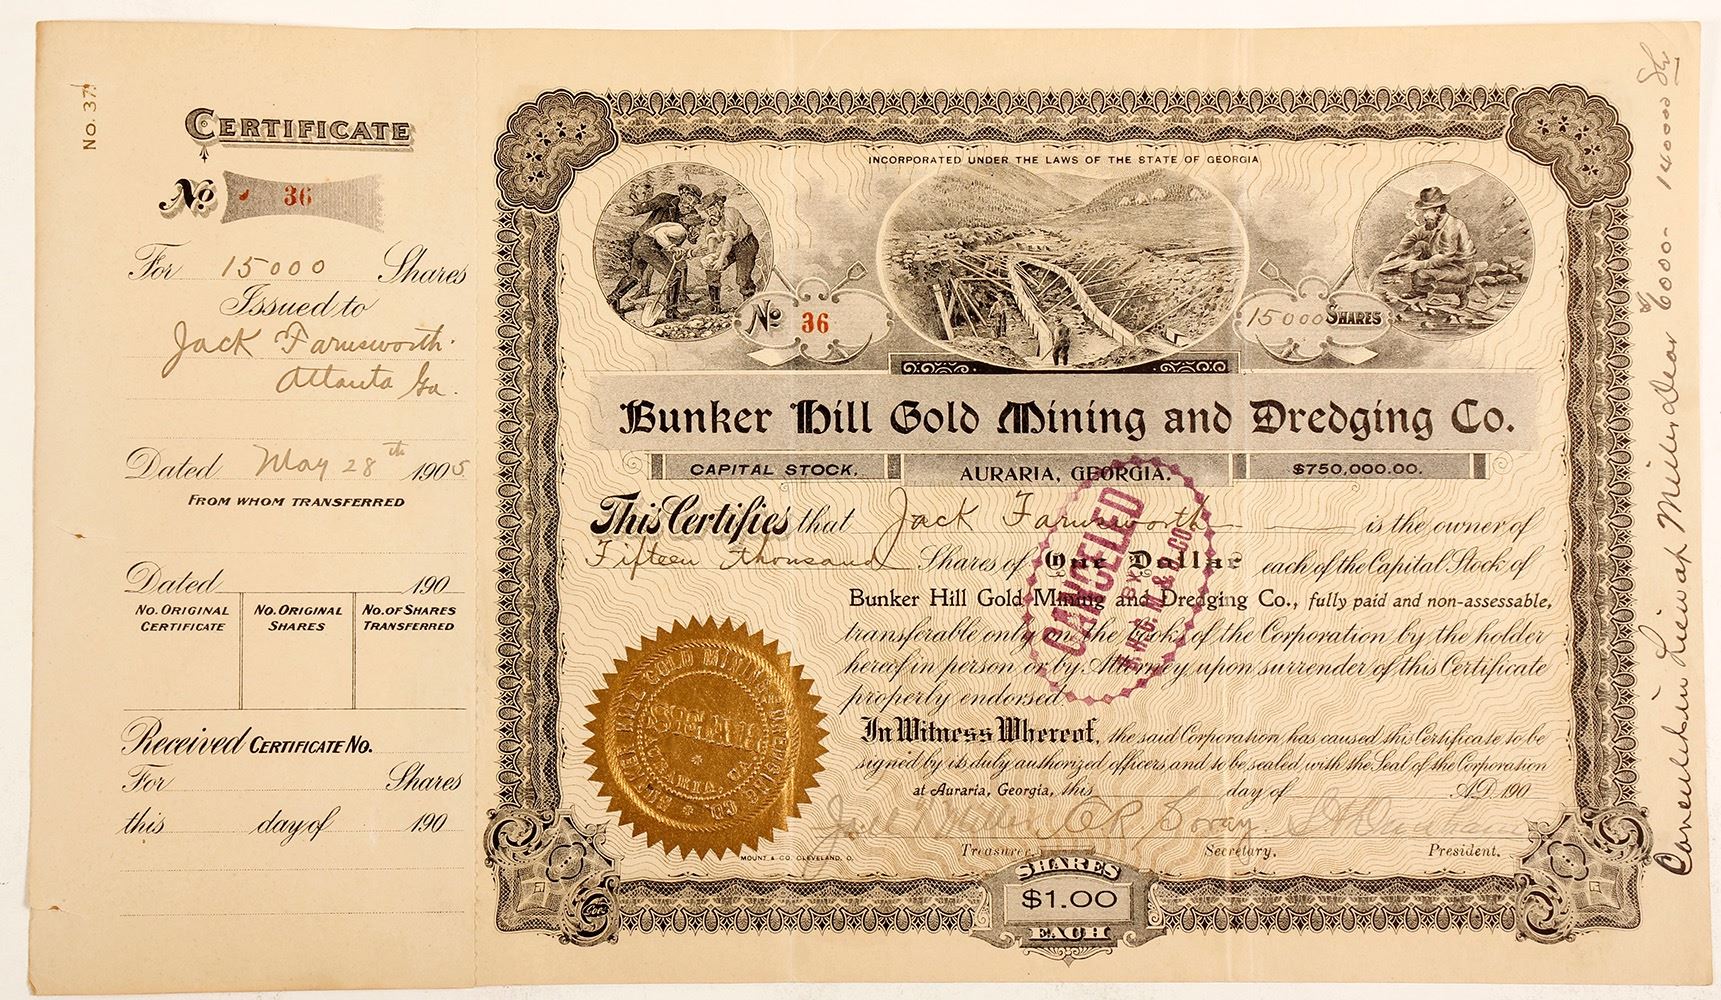 No. 37.
CERTIFICATE
No 36
For 15000 Shares
Issued to
Jack Farnsworth.
Atlanta Ga.
Dated May 28th 1905
FROM WHOM TRANSFERRED
Dated 190
NO. ORIGINAL CERTIFICATE
NO. ORIGINAL SHARES
NO. OF SHARES TRANSFERRED
Received CERTIFICATE NO.
For Shares
this day of 190
INCORPORATED UNDER THE LAWS OF THE STATE OF GEORGIA
No 36
15000 SHARES
Bunker Hill Gold Mining and Dredging Co.
CAPITAL STOCK. AURARIA, GEORGIA. $750,000.00.
This Certifies that Jack Farnsworth is the owner of
Fifteen thousand Shares of One Dollar each of the Capital Stock of
Bunker Hill Gold Mining and Dredging Co., fully paid and non-assessable,
transferable only on the books of the Corporation by the holder
hereof in person or by Attorney upon surrender of this Certificate
properly endorsed.
In Witness Whereof, the said Corporation has caused this Certificate to be
signed by its duly authorized officers and to be sealed with the Seal of the Corporation
at Auraria, Georgia, this day of A.D. 190
Treasurer. Secretary. President.
MOUNT & CO. CLEVELAND, O.
SHARES
$1.00
EACH
CANCELED
BY
B. H. G. M. & D. CO.
BUNKER HILL GOLD MINING & DREDGING CO.
SEAL
AURARIA, GA.
6000- 140000